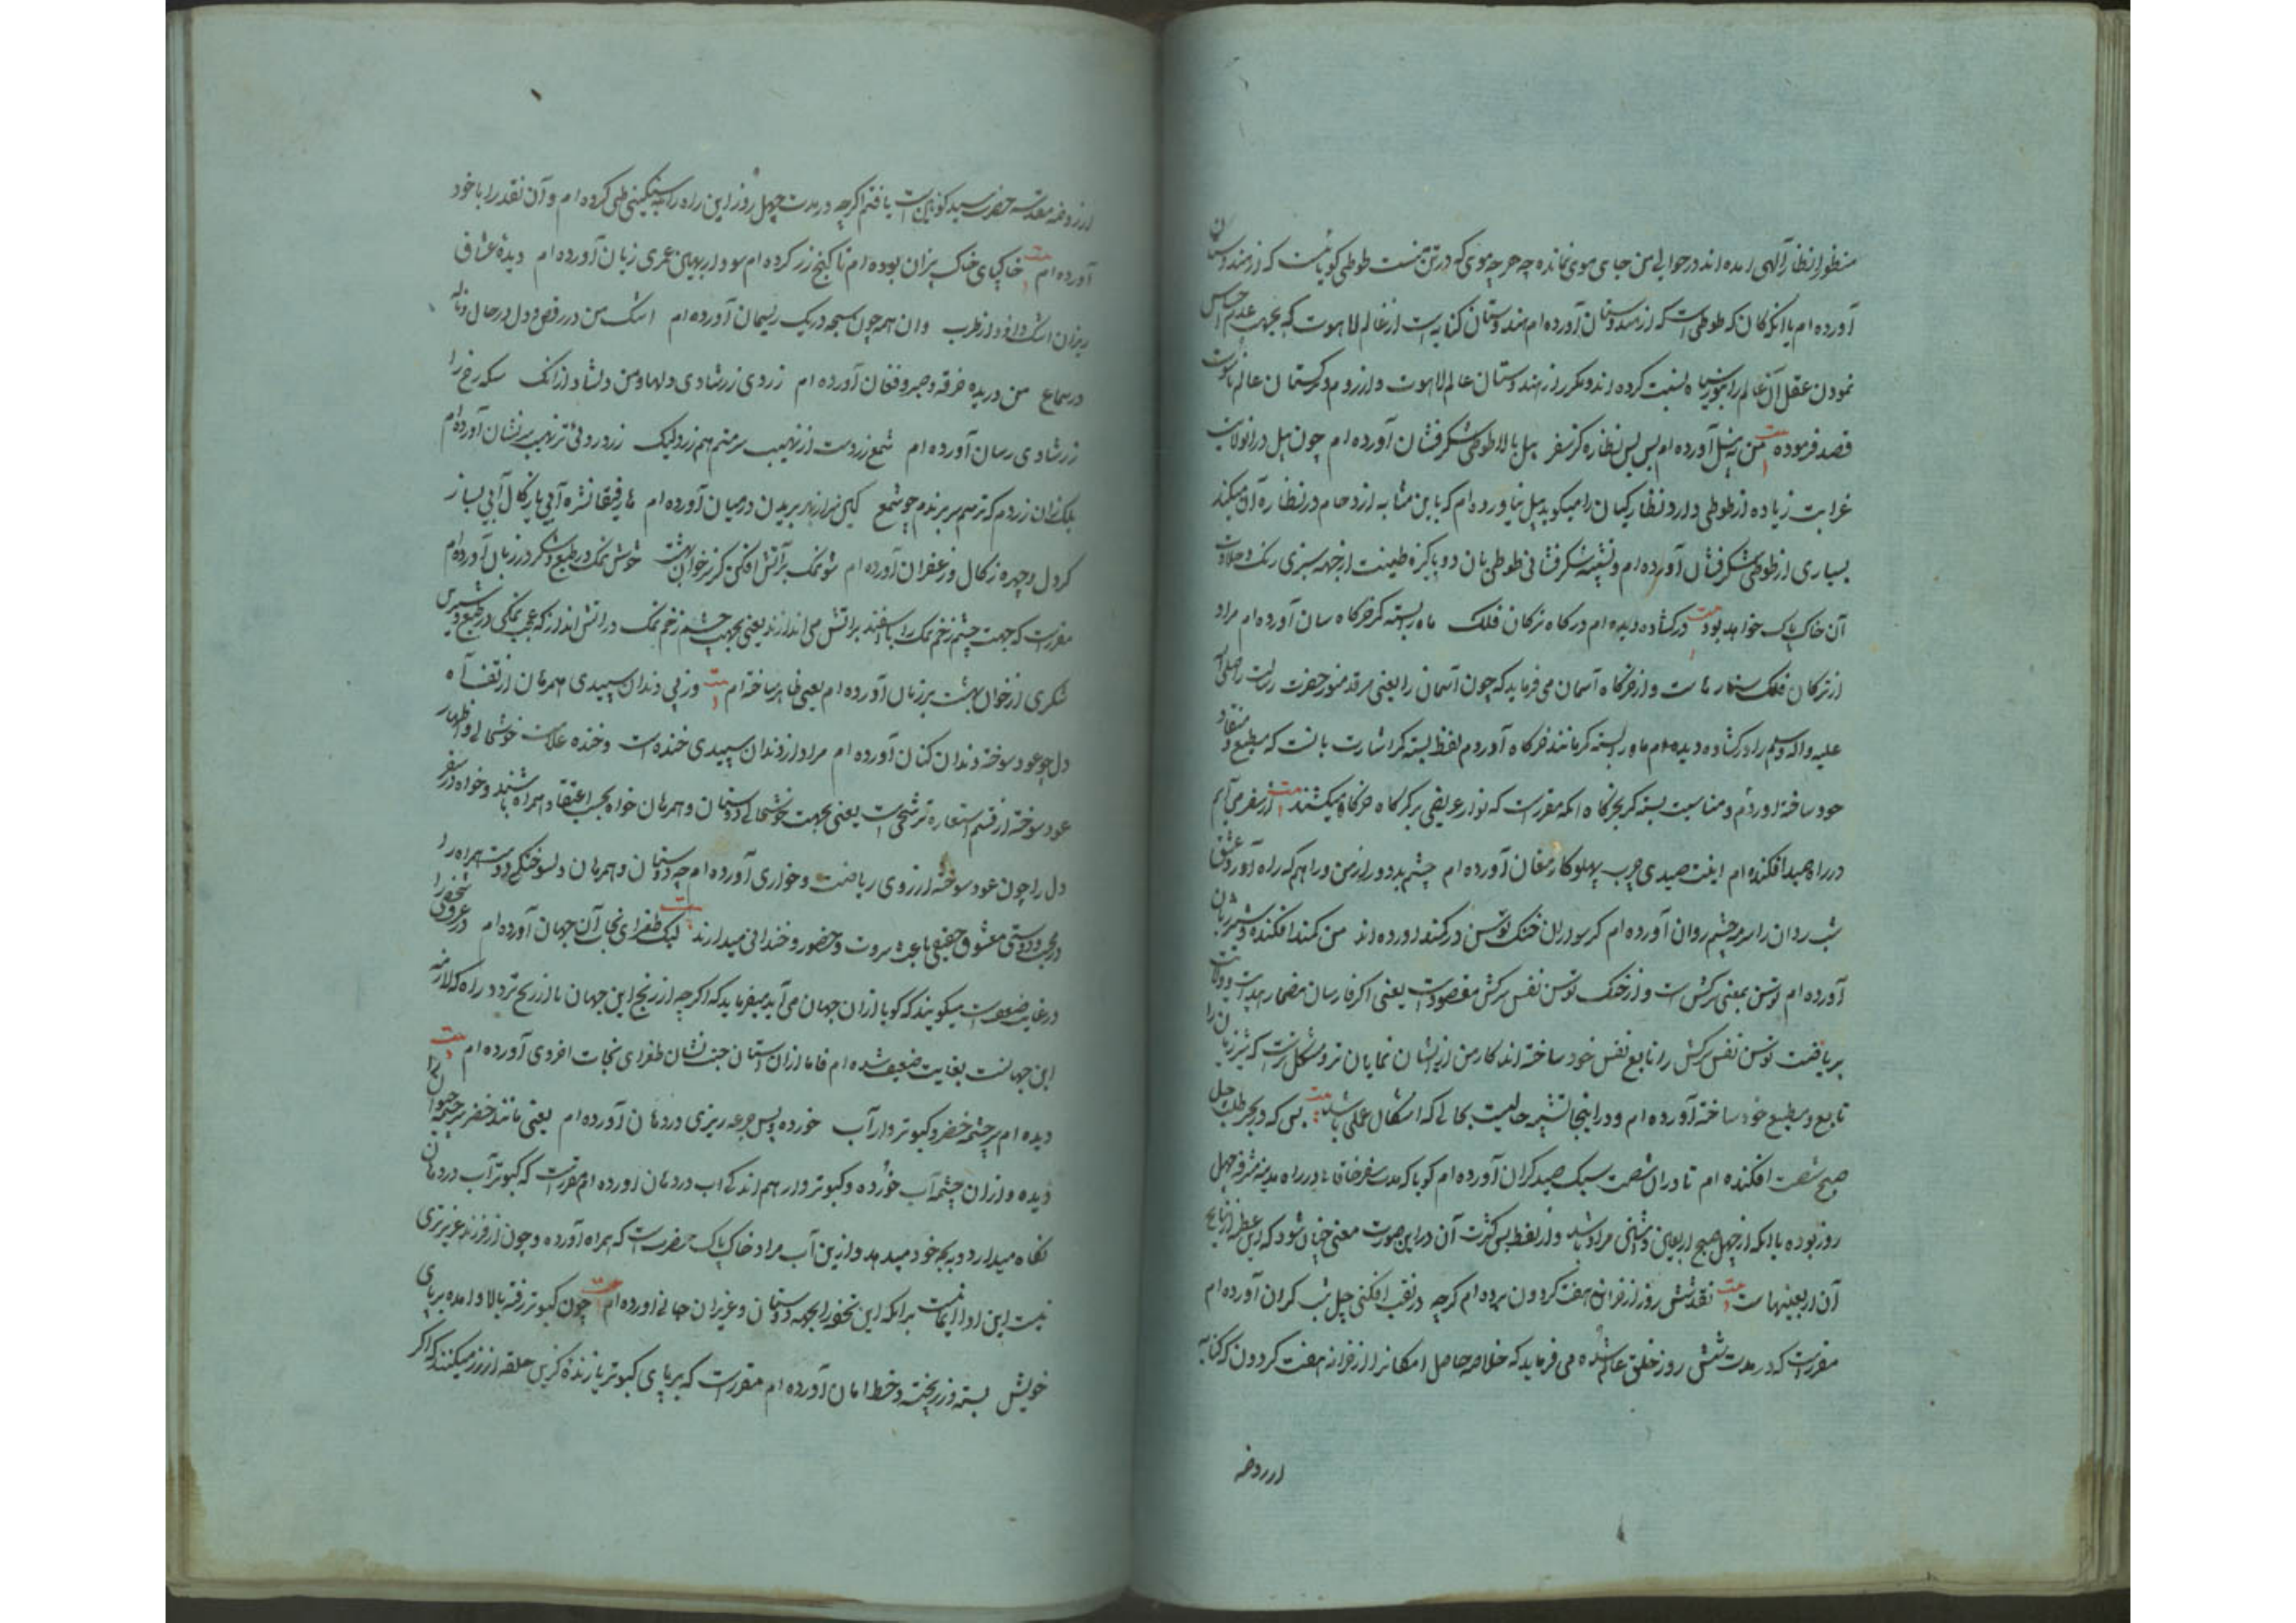 منظور انظار آلهی آمده اند در حوالی من جای موی نمانده چه هر چه موی که در تن منست طوطی گویاست که از هندوستان
آورده ام یا آنکه کان که طوطی است که از هندوستان آورده ام هندوستان کنایه است از عالم لاهوت که بجهت عدم احساس
نمودن عقل آن عالم را بتوری سیاه نسبت کرده اند و مکرر از هندوستان عالم لاهوت و از روم و ترکستان عالم ناسوت
قصد فرموده بیت من نه پیل آورده ام بس بس نظاره کز سفر پیل بالا طوطی شکرفشان آورده ام چون پیل در آنولایت
غرابت زیاده از طوطی دارد نظارکیان را میکوید پیل نیاورده ام که باین مثابه ازدحام در نظاره آن میکند
بسیاری از طوطی شکرفشان آورده ام و تشبیه شکرفشانی طوطی بان دو پاکیزه طینت از جهه سبزی رنک و حلاوت
آن خاک پاک خواهد بود بیت درکشاده دیده ام درکاه ترکان فلک ماه بسته کر خرکاه سان آورده ام مراد
از ترکان فلک ستارهاست و از خرکاه آسمان می فرماید که چون آسمان را یعنی مرقد منور حضرت رسالت را صلی الله
علیه و اله وسلم را درکشاده دیده ام ماه را بسته کر مانند خرکاه آوردم لفظ بسته کر اشارت بانست که مطیع و منقاد
خود ساخته آوردم و مناسبت بسته کر بخرکاه آنکه مقررست که نوار عریضی بر کرکاه خرکاه میکشند بیت از سفر می آیم
در راه صید افکنده ام اینت صیدی چرب پهلو کارمغان آورده ام چشم بد دور از من و راهم که راه آورد عشق
شب روان را سرمه چشم روان آورده ام کر سواران خنک توسن در کمند آورده اند من کمند افکنده و شیر ژیان
آورده ام توسن بمعنی سرکش است و از خنک توسن نفس سرکش مقصودست یعنی اکر فارسان مضمار هدایت و ولایت
بریاضت توسن نفس سرکش را تابع نفس خود ساخته اند کار من از ایشان نمایان تر و مشکلترست که شیر ژیان را
تابع و مطیع خود ساخته آورده ام و در اینجا تشبیه حالیت بحالی که اشکال علی باشد بیت بس که در بحر طلب چهل
صبح شصت افکنده ام تا در ان شصت سبک صید کران آورده ام کویا که مدت سفر خاقانی در راه مدینه مشرفه چهل
روز بوده یا آنکه از چهل صبح اربعین و چلهٔ مراد باشد و از لفظ بس کثرت آن در این صورت معنی چنان شود که این عطر از نتایج
آن اربعینهاست بیت نقد شش روز از خزانهٔ هفت کردون برده ام کرچه در نقب افکنی چل شب کران آورده ام
مقررست که در مدت شش روز خلق عالم شده می فرماید که خلاصه حاصل امکانرا از خزانه هفت کردون که کنایه
از روضه
از روضه مقدسه حضرت سید کونین است یافتم اکرچه در مدت چهل روز این راه را بسنکینی طی کرده ام و آن نقد را با خود
آورده ام بیت خاکپای خاک بیزان بوده ام تا کنج زر کرده ام سود ار بهای عمری زیان آورده ام دیدهٔ عشاق
ریزان اشک داود از طرب وان همه چون سبحه در یک ریسمان آورده ام اشک من در رقص و دل در حال و ناله
در سماع من دریده خرقهٔ صبر و فغان آورده ام زردی زر شادی دلهاست و من دلشاد ازانک سکه رخ را
زر شادی رسان آورده ام شمع زردست از نهیب سر منم هم زرد لیک زردرویی نز نهیب سر نشان آورده ام
بلک زان زردم که ترسم سر بریدم چو شمع کاین سر از بهر بریدن در میان آورده ام ها رفیقا نشره آبی یا زکال آبی بیار
کز دل و چهره زکال و زعفران آورده ام شو نمک بر آتش افکن کز سر خوان بهشت خوش نمک در طبع و شکر در زبان آورده ام
مقررست که جهت چشم زخم نمک را با سفند بر آتش می اندازند یعنی بجهت چشم زخم نمک در آتش انداز که عجب نمکی در طبع و شیرین
شکری از خوان بهشت بر زبان آورده ام یعنی ظاهر ساخته ام بیت وز پی دندان سپیدی همرهان از تف آه
دل چو عود سوخته دندان کنان آورده ام مراد از دندان سپیدی خنده است و خنده علامت خوشحالی و اظهار
عود سوخته از قسم استعاره ترشیحی است یعنی بجهت خوشحالی دوستان و همرهان خواه بحسب اعتقاد همراه باشند و خواه در سفر
دل را چون عود سوخته از روی ریاضت و خواری آورده ام چه دوستان و همرهان دلسوختکی دوست همراه را
در محبت و دوستی معشوق حقیقی باعث مروت و حضور و خندانی میدارند بیت لیک طغرای نجات آن جهان آورده ام در عرف شخص را
در غایت ضعف است میکویند که کویا از ان جهان می آید میفرماید که اکرچه از رنج این جهان یا از رنج تردد راه که لازمه
این جهانست بغایت ضعیف شده ام فاما از ان استان جنت نشان طغرای نجات اخروی آورده ام بیت
دیده ام سرچشمه خضر و کبوتر وار آب خورده پس جرعه ریزی در دهان آورده ام یعنی مانند خضر سرچشمه حیوان را
دیده و از ان چشمه آب خورده و کبوتر وار هم اندکی اب در دهان آورده ام مقررست که کبوتر آب در دهان
نکاه میدارد و به بچه خود میدهد و ازین آب مراد خاک پاک حضرتست که همراه آورده و چون از فرزند عزیزتری
نیست این ادا ایماست برانکه این تحفه را بجهه دوستان و عزیزان جانی آورده ام بیت چون کبوتر رفته بالا و امده بر پای
خویش بسته زر تحفه و خط امان آورده ام مقررست که بر پای کبوتر بازنده کزین حلقه از زر میکنند که اکر